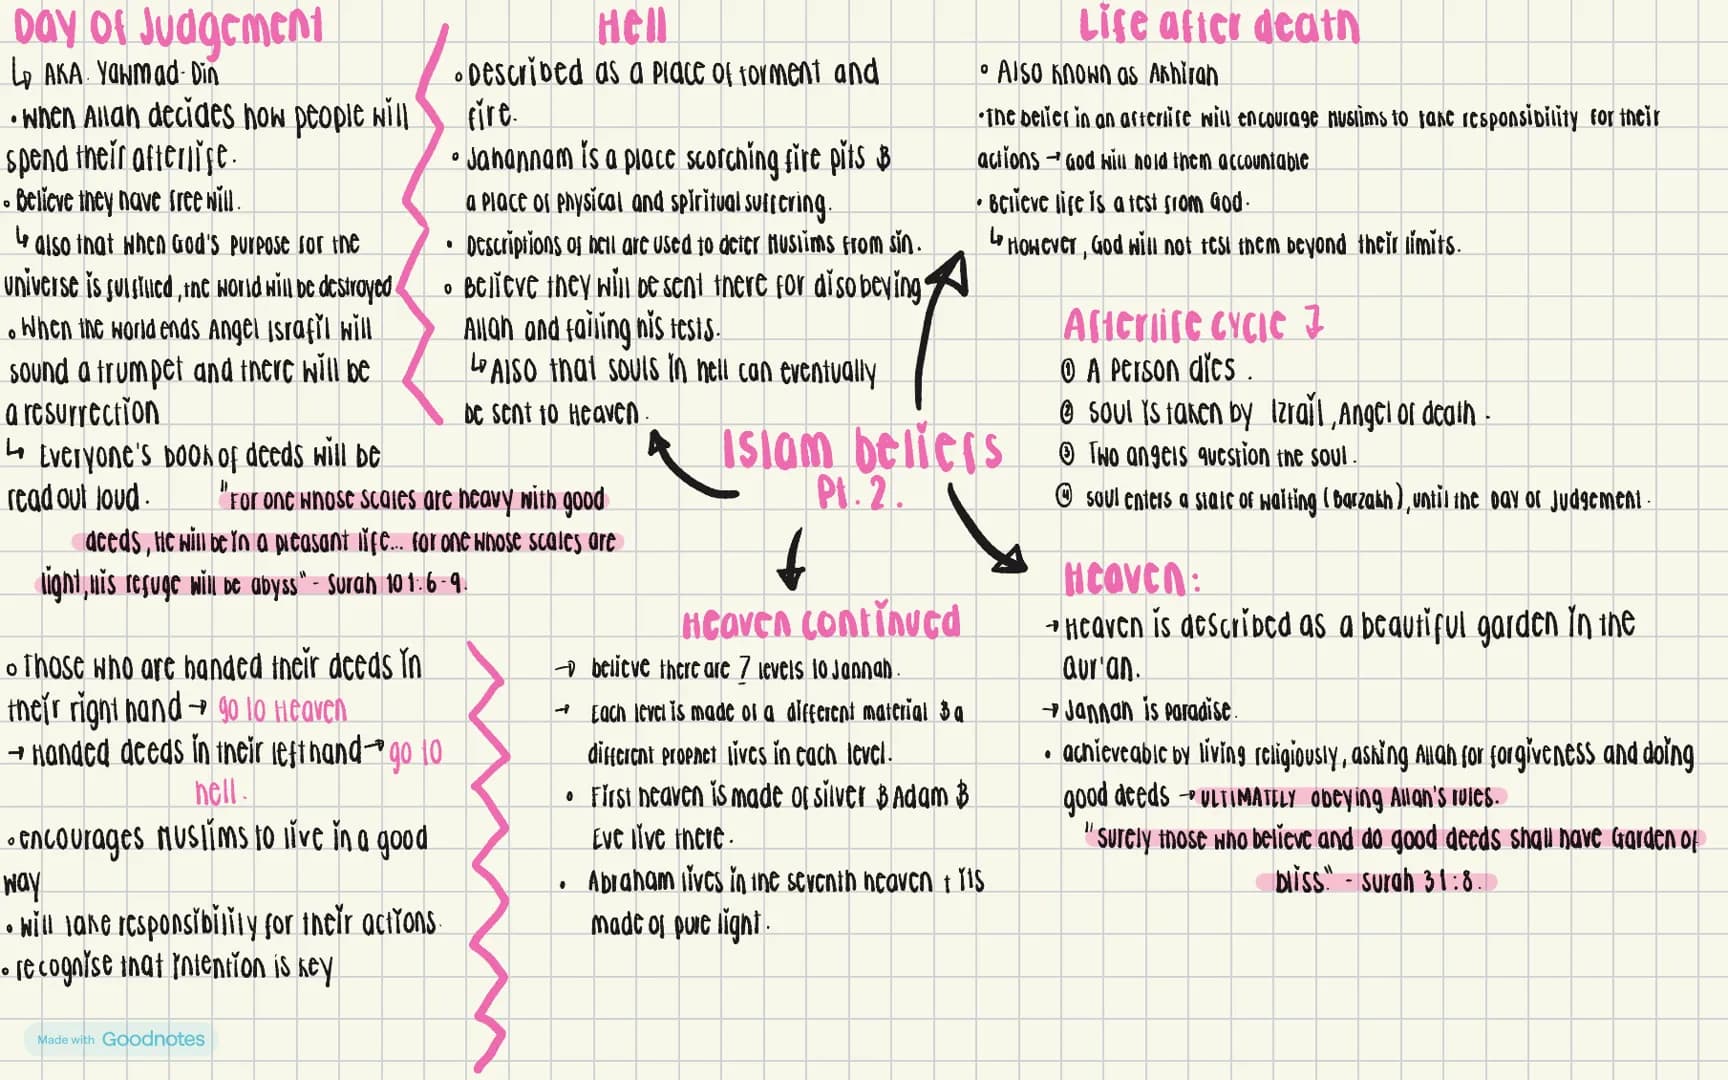 Day of Judgement
↳ AKA. Yawmad-Din
• When Allah decides how people will
spend their afterlife.
• Believe they have free will.
↳ also that when God's purpose for the
universe is fulfilled, the world will be destroyed
• When the world ends Angel Israfil will
sound a trumpet and there will be
a resurrection
↳ Everyone's book of deeds will be
read out loud.
"For one whose scales are heavy with good
deeds, He will be in a pleasant life... for one whose scales are
light, his refuge will be abyss" - Surah 101:6-9.
• Those who are handed their deeds in
their right hand → go to Heaven
→ Handed deeds in their left hand → go to
hell.
• encourages Muslims to live in a good
way
• will take responsibility for their actions.
• recognise that intention is key
Hell
• Described as a place of torment and
fire.
• Jahannam is a place scorching fire pits &
a place of physical and spiritual suffering.
• Descriptions of hell are used to deter Muslims from sin.
• Believe they will be sent there for disobeying
Allah and failing his tests.
↳ Also that souls in hell can eventually
be sent to Heaven.
Islam beliefs
Pt. 2.
Life after death
• Also known as Akhirah
• The belief in an afterlife will encourage Muslims to take responsibility for their
actions → God will hold them accountable
• Believe life is a test from God.
↳ However, God will not test them beyond their limits.
Afterlife cycle
① A person dies.
② Soul is taken by Izrail, Angel of death.
③ Two angels question the soul.
④ Soul enters a state of waiting (Barzakh), until the Day of Judgement.
Heaven:
→ Heaven is described as a beautiful garden in the
Qur'an.
→ Jannah is Paradise.
• achieveable by living religiously, asking Allah for forgiveness and doing
good deeds → ULTIMATELY obeying Allah's rules.
"Surely those who believe and do good deeds shall have Garden of
bliss." - Surah 31:8.
Heaven continued
→ believe there are 7 levels to Jannah.
→ Each level is made of a different material & a
different prophet lives in each level.
• First heaven is made of silver & Adam &
Eve live there.
• Abraham lives in the seventh heaven + its
made of pure light.
Made with Goodnotes